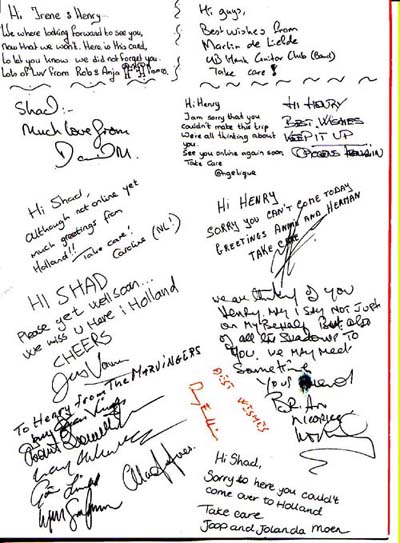 Hi Irene & Henry...
We where looking forward to see you,
now that we won't. Here is this card,
to let you know we did not forget you.
Lots of luv from Rob & Anja
Hi guys,
Best wishes from
Martin de Liefde
Hank Guitar Club (Band)
Take care!
Shad:-
Much love from
David M.
Hi Henry
I am sorry that you
couldn't make this trip
We're all thinking about
you.
See you online again soon
Take care
@ngelique
HI HENRY
BEST WISHES
KEEP IT UP
Hi Shad,
Although not online yet
much greetings from
Holland!! Take care!
Caroline (NL!)
Hi HENRY
SORRY YOU CAN'T COME TODAY
GREETINGS ANNIE AND HERMAN
TAKE CARE
HI SHAD
Please get well soon...
We miss U Here i Holland
CHEERS
we are thinking of you
Henry, may I say not just
on my Behalf But also
of all the Shadows To
You. We may meet
Sometime
Your friend
BEST WISHES
To Henry from The MARVINGERS
Hi Shad,
Sorry to here you couldn't
come over to Holland
Take care
Joop and Jolanda Moen